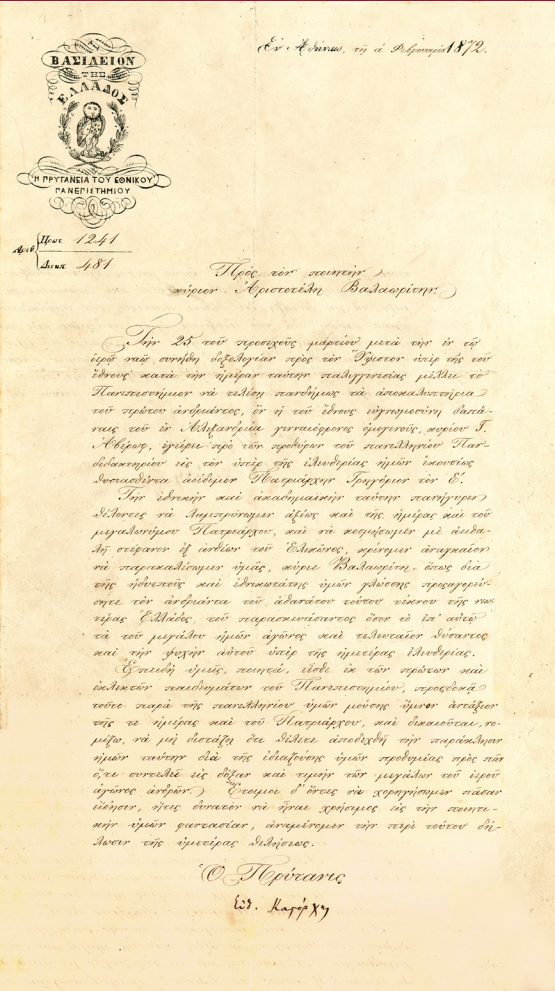 ΒΑΣΙΛΕΙΟΝ
ΤΗΣ
ΕΛΛΑΔΟΣ
Ἡ ΠΡΥΤΑΝΕΙΑ ΤΟΥ ΕΘΝΙΚΟΥ
ΠΑΝΕΠΙΣΤΗΜΙΟΥ
Ἐν Ἀθήναις, τῇ ά Φεβρουαρίου 1872.
Ἀριθ. Πρωτ. 1241
Διεκπ. 481
Πρὸς τὸν ποιητὴν
κύριον Ἀριστοτέλη Βαλαωρίτην.
Τὴν 25 τοῦ προσεχοῦς μαρτίου μετὰ τὴν ἐν τῷ
ἱερῷ ναῷ συνήθη δοξολογίαν πρὸς τὸν Ὕψιστον ὑπὲρ τῆς τοῦ
ἔθνους κατὰ τὴν ἡμέραν ταύτην παλιγγενεσίας μέλλει τὸ
Πανεπιστήμιον νὰ τελέσῃ πανδήμως τὰ ἀποκαλυπτήρια
τοῦ πρώτου ἀνδριάντος, ὃν ἡ τοῦ ἔθνους εὐγνωμοσύνη δαπά-
ναις τοῦ ἐν Ἀλεξανδρείᾳ γενναιόφρονος ὁμογενοῦς, κυρίου Γ.
Ἀβέρωφ, ἐγείρει πρὸ τῶν προθύρων τοῦ πανελληνίου Παν-
διδακτηρίου εἰς τὸν ὑπὲρ τῆς ἐλευθερίας ἡμῶν ἑκουσίως
θυσιασθέντα ἀοίδιμον Πατριάρχην Γρηγόριον τὸν Ε΄.
Τὴν ἐθνικὴν καὶ ἀκαδημαϊκὴν ταύτην πανήγυριν
θέλοντες νὰ λαμπρύνωμεν ἀξίως καὶ τῆς ἡμέρας καὶ τοῦ
μεγαλωνύμου Πατριάρχου, καὶ νὰ κοσμήσωμεν μὲ ἀειθα-
λῆ στέφανον ἐξ ἀνθέων τοῦ Ἑλικῶνος, κρίνομεν ἀναγκαῖον
νὰ παρακαλέσωμεν ὑμᾶς, κύριε Βαλαωρίτη, ὅπως διὰ
τῆς ἡδυεποῦς καὶ ἐθνικωτάτης ὑμῶν γλώσσης προσαγορεύ-
σητε τὸν ἀνδριάντα τοῦ ἀθανάτου τούτου τέκνου τῆς νεω
τέρας Ἑλλάδος, τοῦ παρασκευάσαντος ὅσον τὸ ἐπ' αὐτῷ
τὰ τοῦ μεγάλου ἡμῶν ἀγῶνος καὶ τελευταῖον θύσαντος
καὶ τὴν ψυχὴν αὐτοῦ ὑπὲρ τῆς ἡμετέρας ἐλευθερίας.
Ἐπειδὴ ὑμεῖς, ποιητά, εἶσθε ἐκ τῶν πρώτων καὶ
ἐκλεκτῶν παιδευμάτων τοῦ Πανεπιστημίου, προςδοκᾷ
τοῦτο παρὰ τῆς πανελληνίου ὑμῶν μούσης ὕμνον ἀντάξιον
τῆς τε ἡμέρας καὶ τοῦ Πατριάρχου, καὶ δικαιοῦται, νο-
μίζω, νὰ μὴ διστάζῃ ὅτι θέλετε ἀποδεχθῆ τὴν παράκλησιν
ἡμῶν ταύτην διὰ τῆς ἰδιαζούσης ὑμῖν προθυμίας πρὸς πᾶν
ὅ,τι συντελεῖ εἰς δόξαν καὶ τιμὴν τῶν μεγάλων τοῦ ἱεροῦ
ἀγῶνος ἀνδρῶν. Ἕτοιμοι δ' ὄντες νὰ χορηγήσωμεν πᾶσαν
εἴδησιν, ἥτις δυνατὸν νὰ ἦναι χρήσιμος εἰς τὴν ποιητι-
κὴν ὑμῶν φαντασίαν, ἀναμένομεν τὴν περὶ τούτου δή-
λωσιν τῆς ὑμετέρας θελήσεως.
Ὁ Πρύτανις
Εὐθ. Καστόρχης